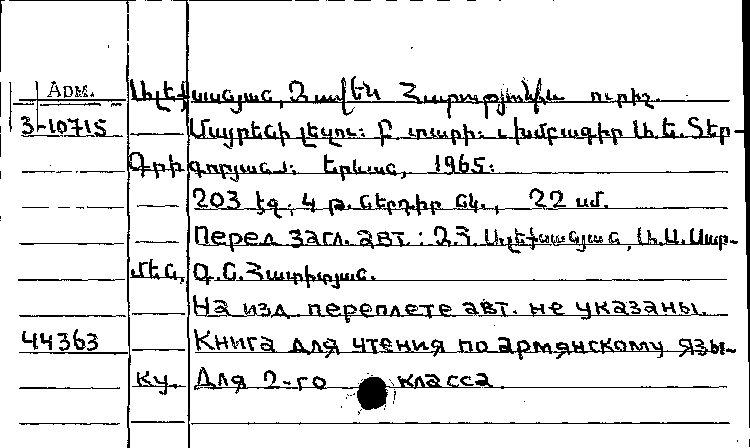 Арм. Ալեքսանյան, Զավեն Հարությունի և ուրիշ.
3-10715 Մայրենի լեզու: Բ տարի: Խմբագիր Ա. Ե. Տեր-
Գրիգորյան: Երևան, 1965:
203 էջ; 4 թ. ներդիր նկ., 22 սմ.
Перед загл. авт.: Զ.Հ. Ալեքսանյան, Ա.Ա. Սար-
մեն, Գ.Ն. Հատիտյան.
На изд. переплете авт. не указаны.
44363 Книга для чтения по армянскому язы-
ку. Для 2-го класса.